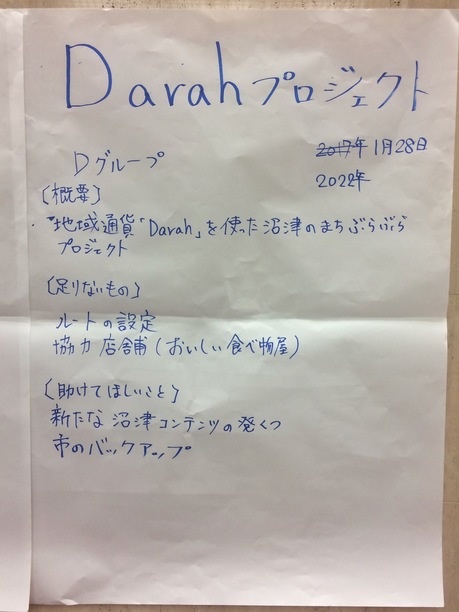 Darahプロジェクト
2017年1月28日
2022年
Dグループ
〔概要〕
"地域通貨「Darah」を使った沼津のまちぶらぶら
プロジェクト
〔足りないもの〕
ルートの設定
協力店舗(おいしい食べ物屋)
〔助けてほしいこと〕
新たな沼津コンテンツの発くつ
市のバックアップ